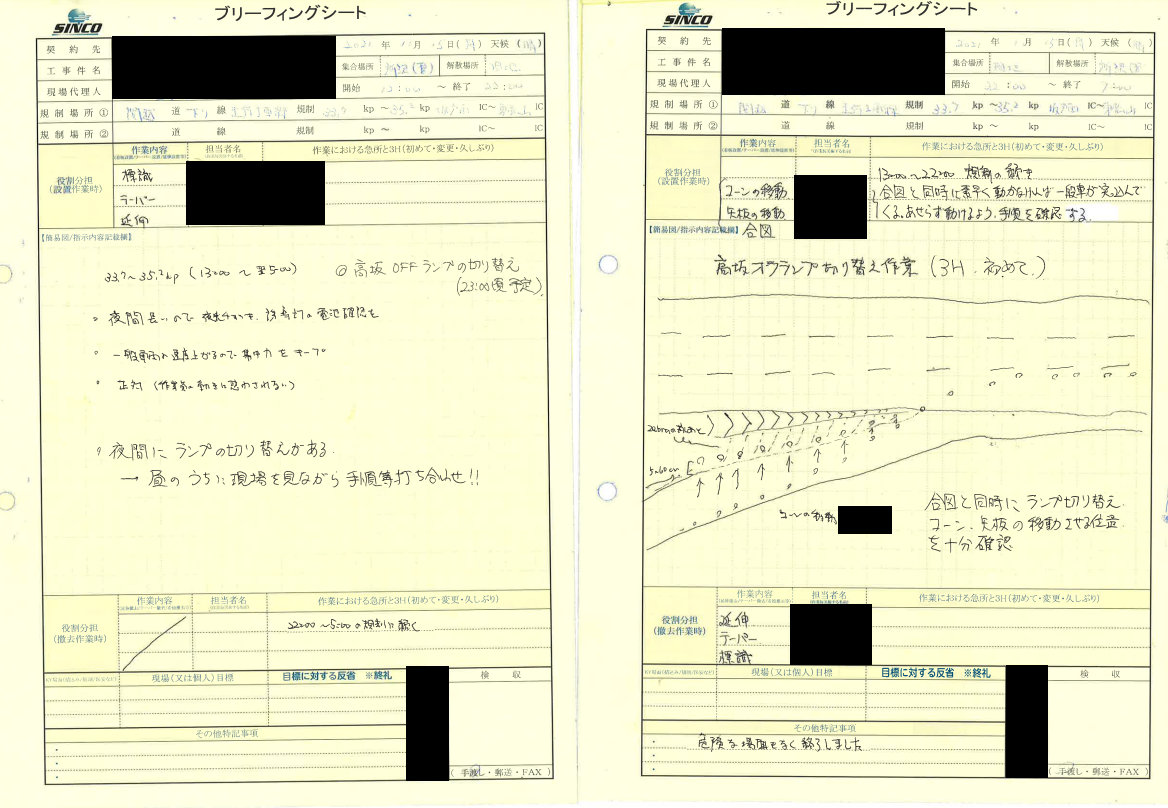 ブリーフィングシート
SINCO
契約先
2021 年 11 月 15 日(月) 天候(晴)
工事件名
集合場所
解散場所
現場代理人
開始 13:00 ～ 終了 22:00
規制場所① 関越 道 下り 線 規制 33.7 kp ～ 35.2 kp IC～ IC
規制場所② 道 線 規制 kp ～ kp IC～ IC
役割分担
(設置作業時)
作業内容 担当者名 作業における急所と3H(初めて・変更・久しぶり)
標識
テーパー
延伸
【簡易図/指示内容記載欄】
33.7～35.2kp (13:00 ～ 翌5:00)
◎ 高坂 OFF ランプの切り替え
(23:00頃予定)
夜間長いので
電池確認を
一般車両の速度上がるので集中力をキープ
夜間にランプの切り替えがある
→ 昼のうちに現場を見ながら手順等打ち合わせ!!
役割分担
(撤去作業時)
作業内容 担当者名 作業における急所と3H(初めて・変更・久しぶり)
22:00～5:00の規制に続く
現場(又は個人)目標 目標に対する反省 ※終礼 検収
その他特記事項
(手渡し・郵送・FAX)
ブリーフィングシート
SINCO
契約先
2021 年 11 月 15 日(月) 天候(晴)
工事件名
集合場所
解散場所
現場代理人
開始 22:00 ～ 終了
規制場所① 関越 道 下り 線 規制 33.7 kp ～ 35.2 kp IC～ IC
規制場所② 道 線 規制 kp ～ kp IC～ IC
役割分担
(設置作業時)
作業内容 担当者名 作業における急所と3H(初めて・変更・久しぶり)
13:00～22:00 規制の続き
コーンの移動 合図と同時に素早く動かなければ一般車が突込んで
矢板の移動 くる。あせらず動けるよう、手順を確認する。
【簡易図/指示内容記載欄】 合図
高坂オフランプ切り替え作業 (3H 初めて)
コーンの移動
合図と同時にランプ切り替え
コーン、矢板の移動させる位置
を十分確認
役割分担
(撤去作業時)
作業内容 担当者名 作業における急所と3H(初めて・変更・久しぶり)
延伸
テーパー
標識
現場(又は個人)目標 目標に対する反省 ※終礼 検収
その他特記事項
危険な場面もなく終了しました
(手渡し・郵送・FAX)